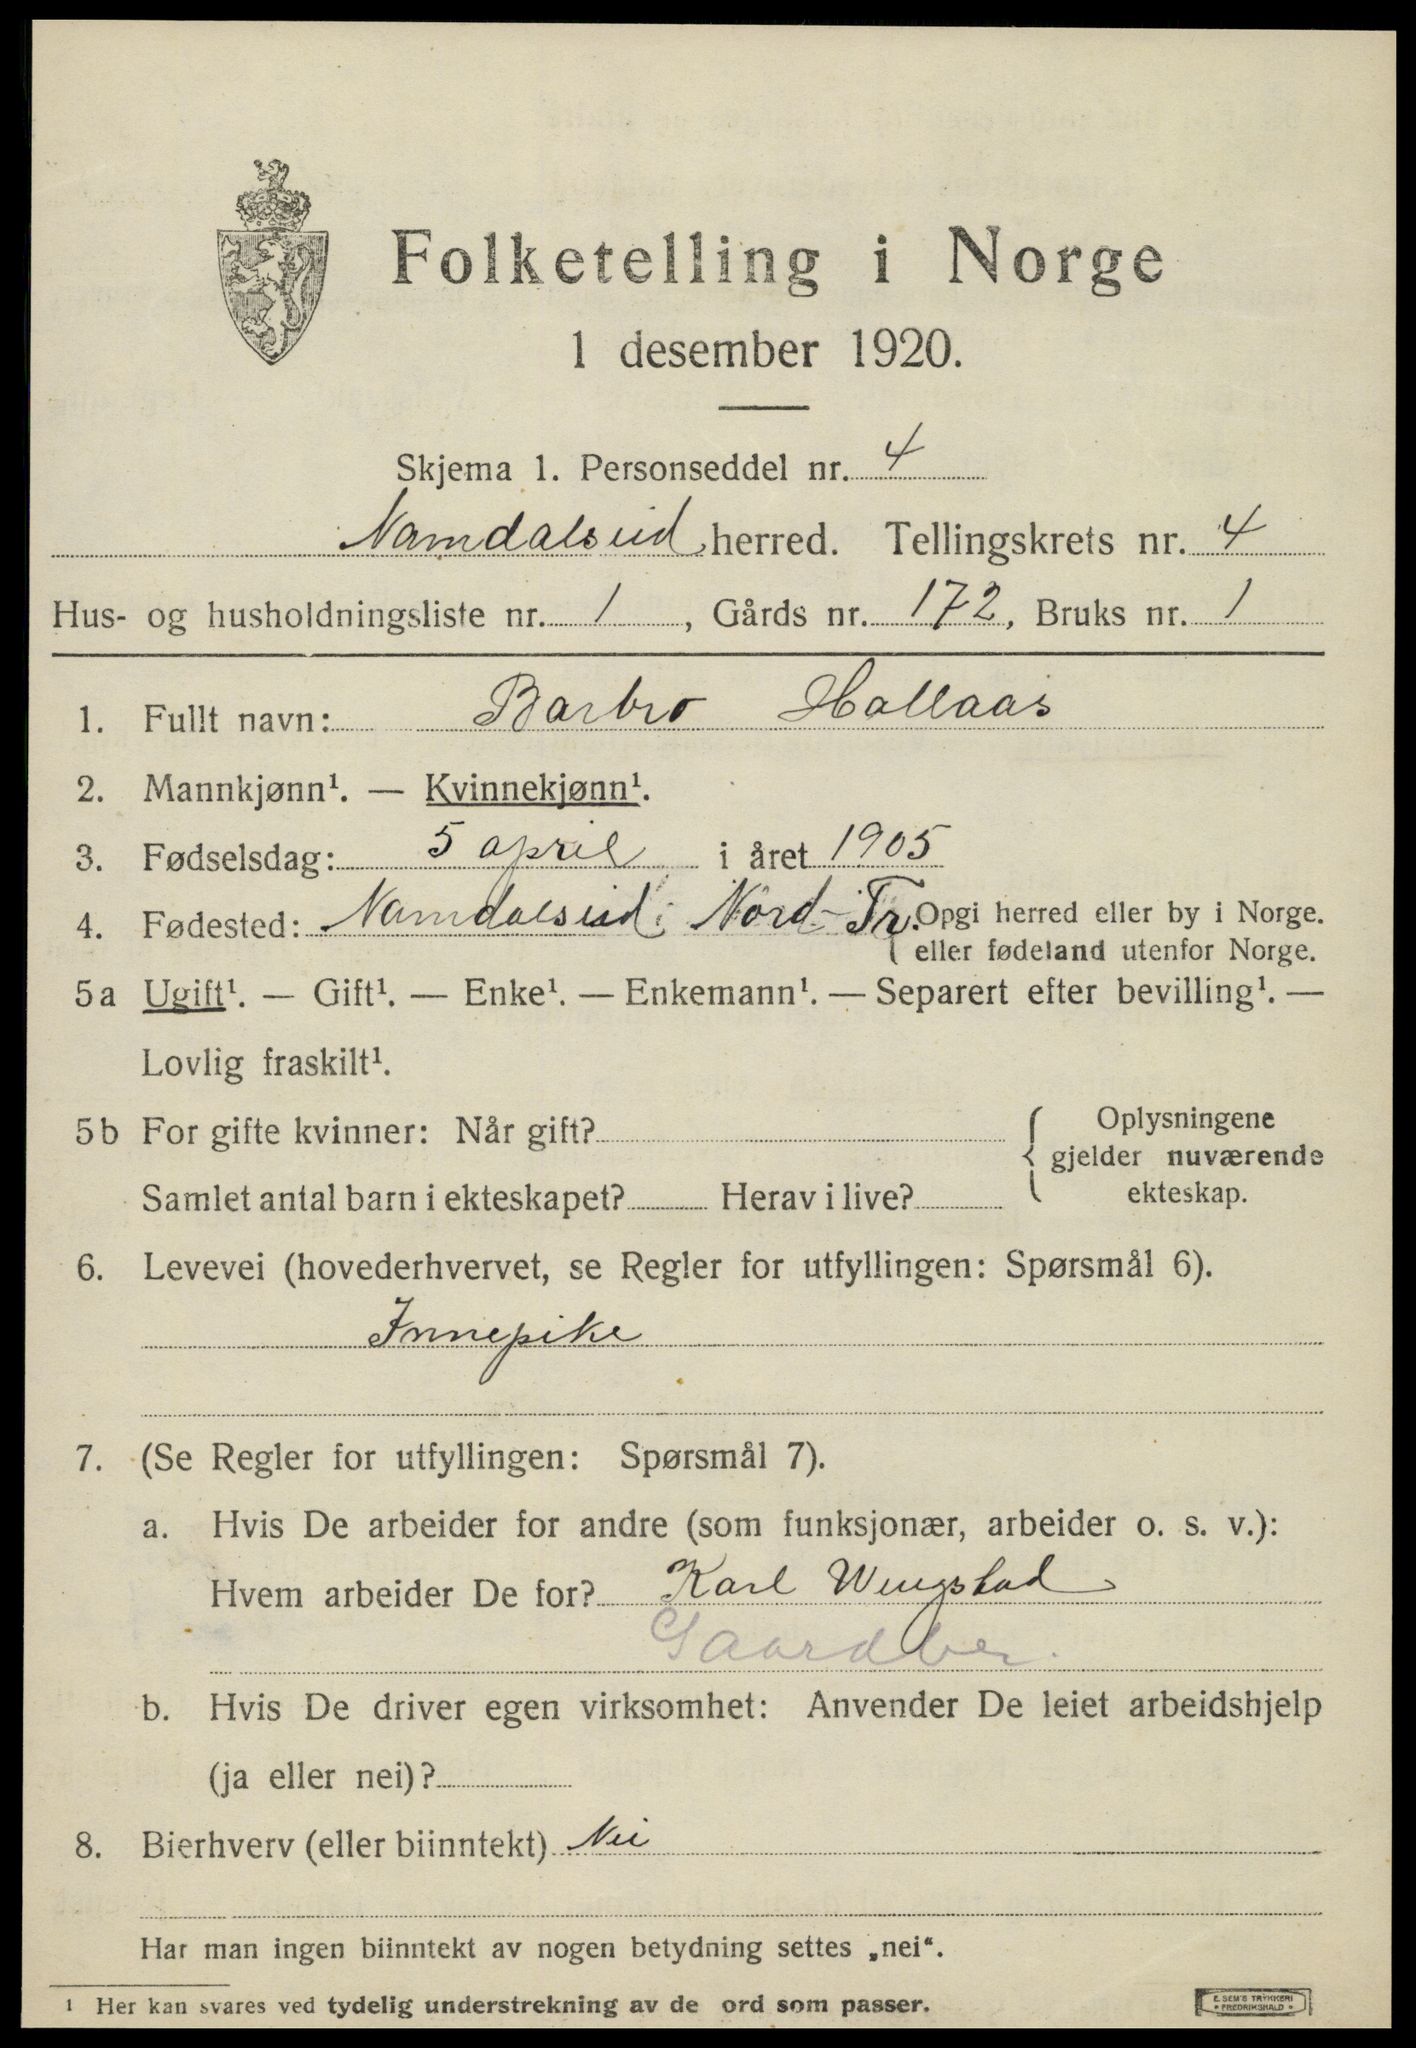 Folketelling i Norge
1 desember 1920.
Skjema 1. Personseddel nr. 4
Namdalseid herred. Tellingskrets nr. 4
Hus- og husholdningsliste nr. 1, Gårds nr. 172, Bruks nr. 1
1. Fullt navn: Barbro Hallaas
2. Mannkjønn¹. — Kvinnekjønn¹.
3. Fødselsdag: 5 april i året 1905
4. Fødested: Namdalseid, Nord-Tr. Opgi herred eller by i Norge.
eller fødeland utenfor Norge.
5a Ugift¹. — Gift¹. — Enke¹. — Enkemann¹. — Separert efter bevilling¹. —
Lovlig fraskilt¹.
5b For gifte kvinner: Når gift?
Samlet antal barn i ekteskapet? Herav i live?
Oplysningene
gjelder nuværende
ekteskap.
6. Levevei (hovederhvervet, se Regler for utfyllingen: Spørsmål 6).
Innepike
7. (Se Regler for utfyllingen: Spørsmål 7).
a. Hvis De arbeider for andre (som funksjonær, arbeider o. s. v.):
Hvem arbeider De for? Karl Wengstad
Gaardber.
b. Hvis De driver egen virksomhet: Anvender De leiet arbeidshjelp
(ja eller nei)?
8. Bierhverv (eller biinntekt) Nei
Har man ingen biinntekt av nogen betydning settes „nei“.
¹ Her kan svares ved tydelig understrekning av de ord som passer.
E. SEM'S TRYKKERI
• FREDRIKSHALD •